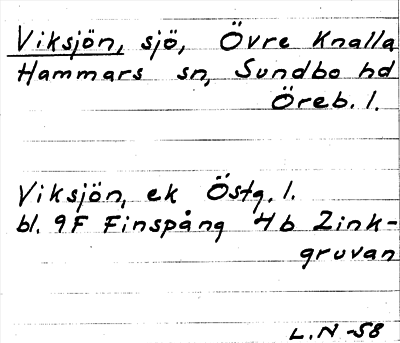 Viksjön, sjö, Övre Knalla
Hammars sn, Sundbo hd
Öreb. l.
Viksjön, ek Östg. l.
bl. 9F Finspång 4b Zink-
gruvan
L.N -58